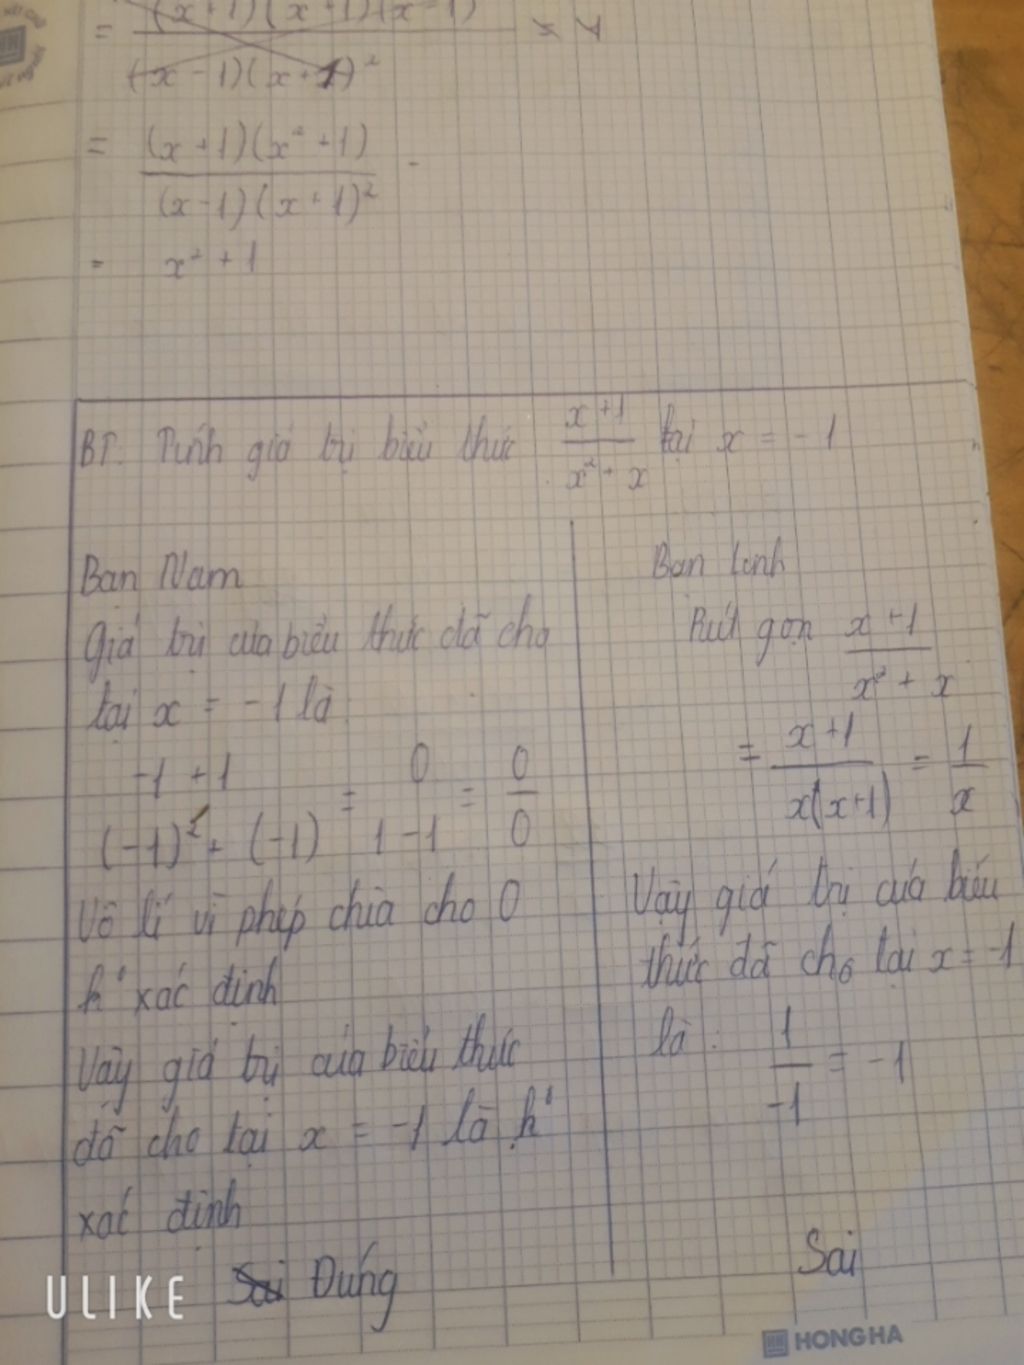 = (x+1)(x+1)(x-1)
(x-1)(x+1)²
= (x+1)(x²+1)
(x-1)(x+1)²
= x² + 1
BT. Tính giá trị biểu thức x+1 / x²+x tại x = -1
Bạn Nam
Giá trị của biểu thức đã cho
tại x = -1 là
-1 + 1 / (-1)² + (-1) = 0 / 1 - 1 = 0 / 0
Vô lí vì phép chia cho 0
k' xác định
Vậy giá trị của biểu thức
đã cho tại x = -1 là k'
xác định
Sai Đúng
Bạn Linh
Rút gọn x+1 / x² + x
= x+1 / x(x+1) = 1 / x
Vậy giá trị của biểu
thức đã cho tại x = -1
là: 1 / -1 = -1
Sai
ULIKE
HONG HA